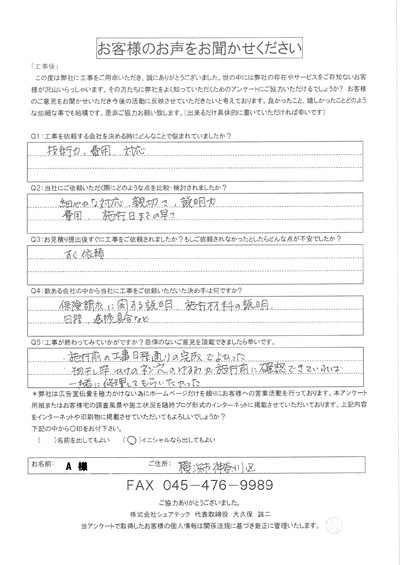 お客様のお声をお聞かせください
「工事後」
この度は弊社に工事をご用命いただき、誠にありがとうございました。世の中には弊社の存在やサービスをご存知ないお客
様が沢山いらっしゃいます。その方たちに弊社をよく知っていただくためのアンケートにご協力いただけるでしょうか？ お客様
のご意見をお聞かせいただき今後の活動に反映させていただきたいと考えております。良かったこと、嬉しかったことどのよう
な些細な事でも結構です。是非ご協力お願い致します。（出来るだけ具体的に書いていただければ幸いです）
Q1：工事を依頼する会社を決める時にどんなことで悩まれていましたか？
技術力、費用、対応
Q2：当社にご依頼いただく際にどのような点を比較・検討されましたか？
細やかな対応、親切さ、説明力
費用、施行日までの早さ
Q3：お見積り提出後すぐに工事をご依頼されましたか？もしご依頼されなかったとしたらどんな点が不安でしたか？
すぐ依頼
Q4：数ある会社の中から当社に工事をご依頼いただいた決め手は何ですか？
保険請求に関する説明、施行材料の説明、
日程、連携具合など
Q5：工事が終わってみていかがですか？忌憚のないご意見を頂戴できましたら幸いです。
・施行前の工事日程通りの完成でよかった
・物干し竿かけのネジ穴の
施行前に確認できていれば
一緒に修理してもらいたかった
＊弊社は広告宣伝費を極力かけない為にホームページだけを頼りにお客様への営業活動を行っております。本アンケート
用紙またはお客様宅の調査風景や施工状況を随時ブログ形式のインターネットに掲載させていただいております。上記内容
をインターネットや印刷物に掲載させていただいてもよろしいでしょうか？
下記の中から〇印をお付け下さい。
（　）名前を出してもよい　（〇）イニシャルなら出してもよい
お名前： A 様 ご住所： 横浜市神奈川区
FAX 045-476-9989
ご協力ありがとうございました。
株式会社シェアテック 代表取締役 大久保 誠二
当アンケートで取得したお客様の個人情報は関係法規に基づき厳正に管理いたします。